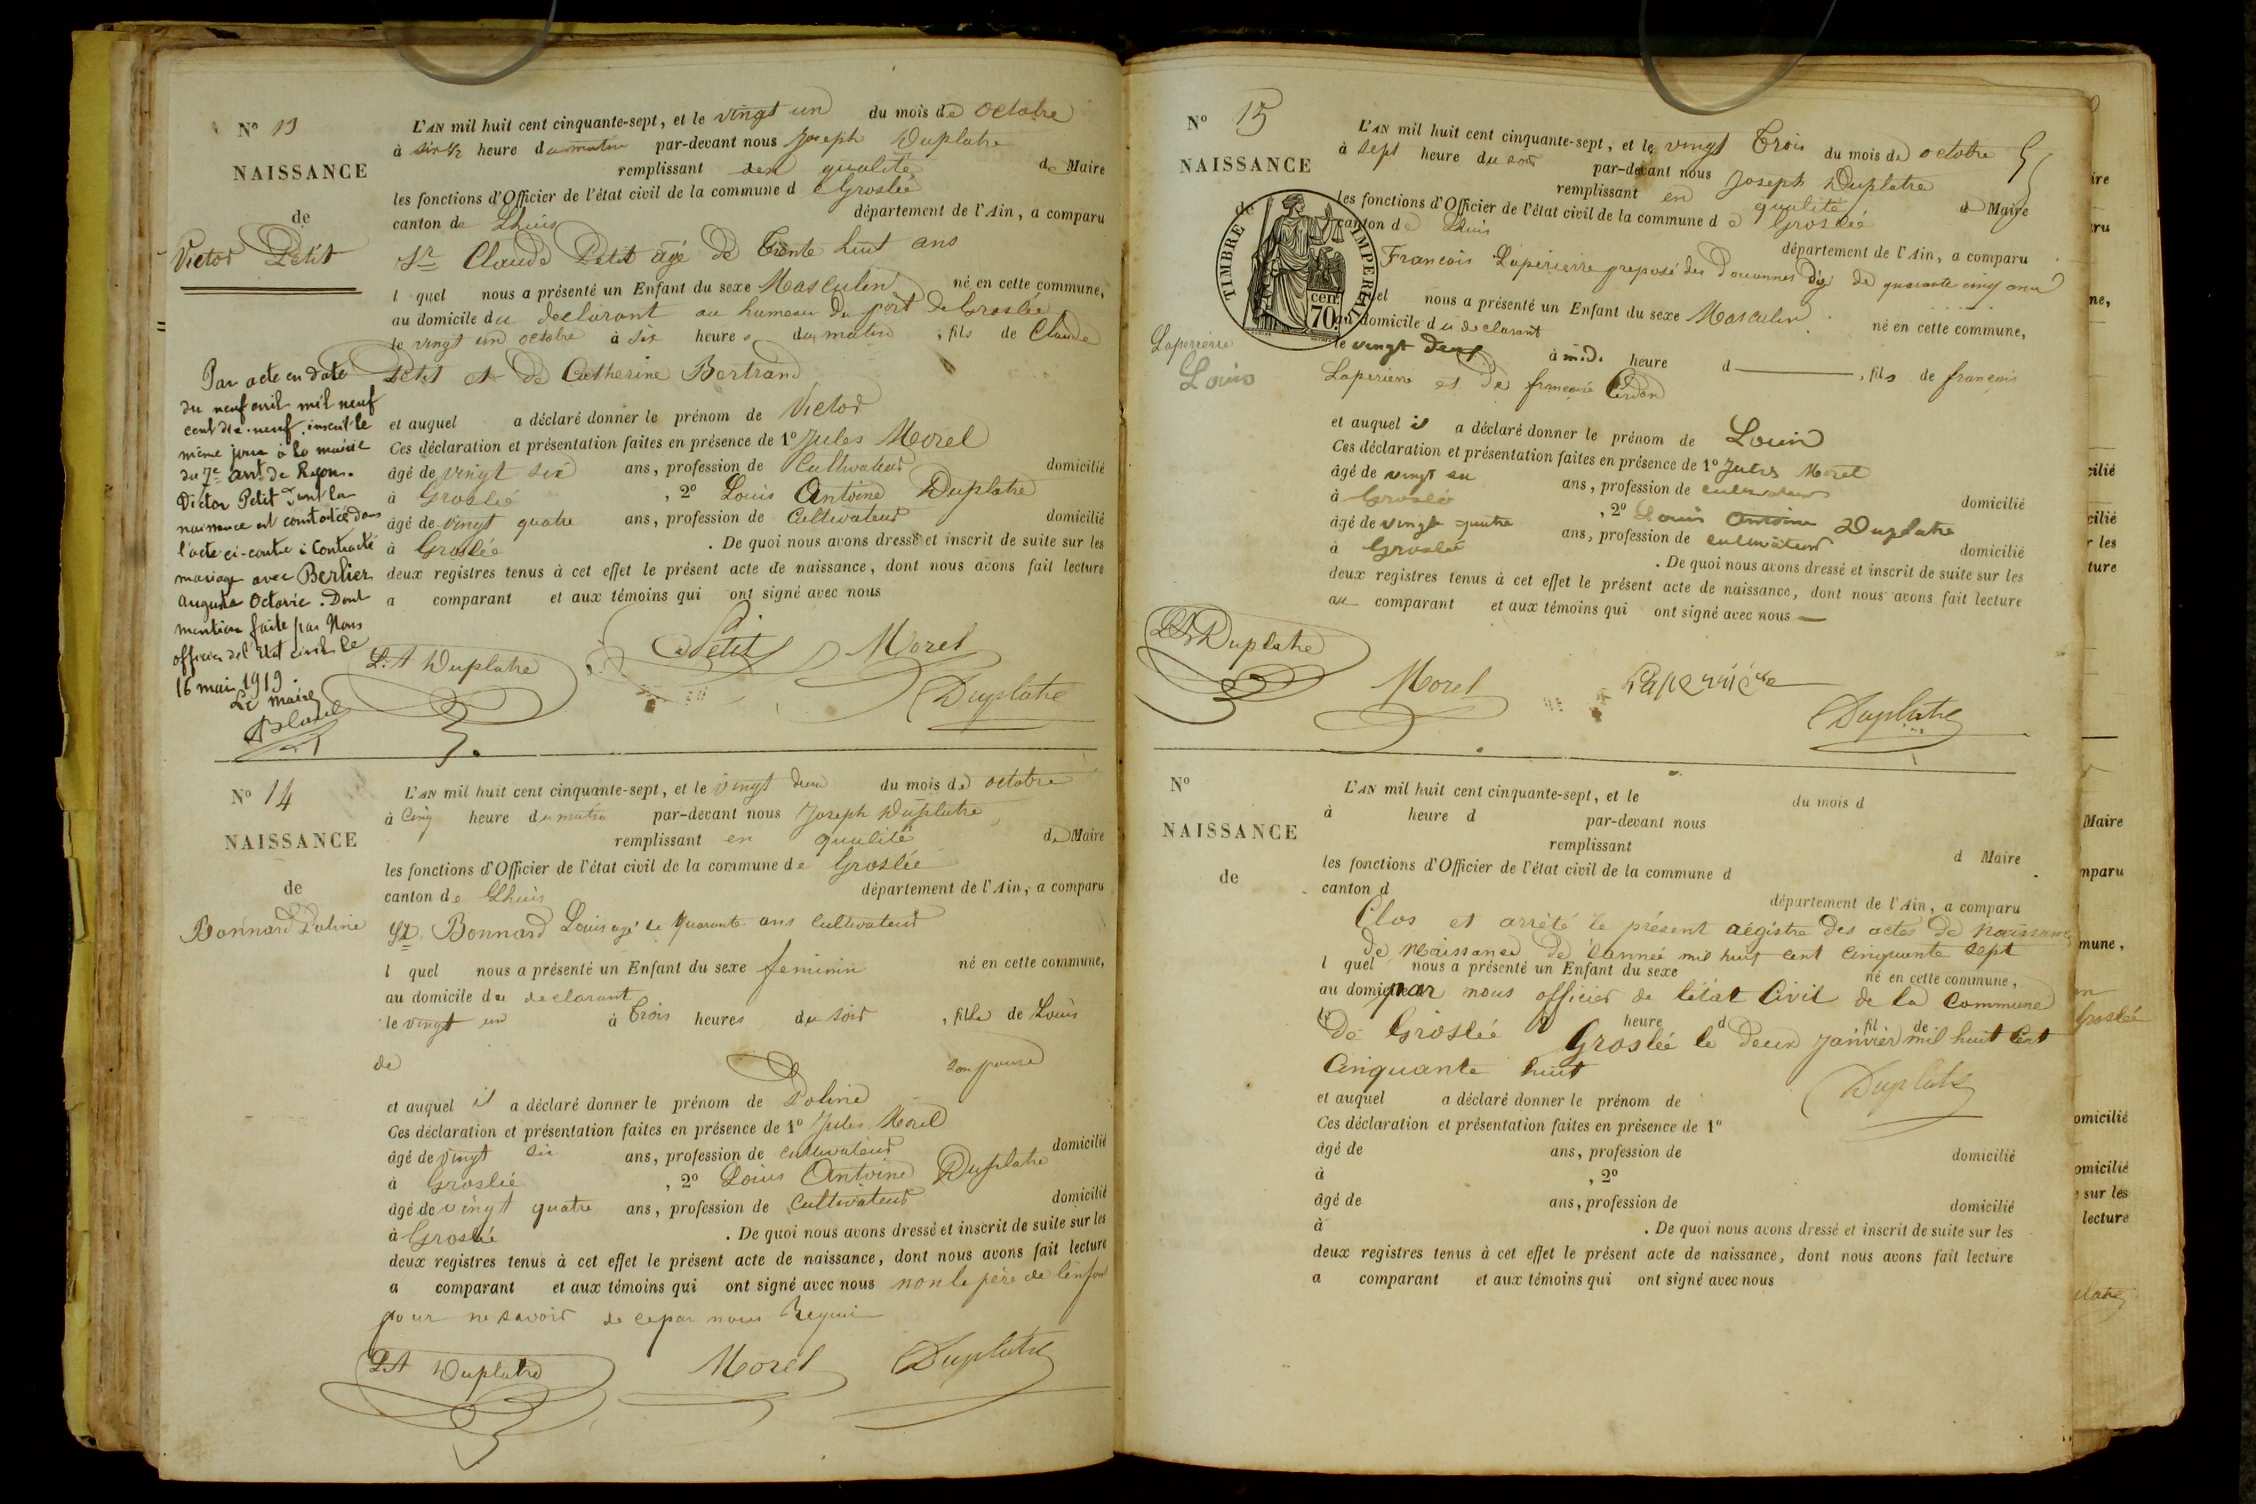 N° 13
NAISSANCE
de
Victor Petit
L'AN mil huit cent cinquante-sept, et le vingt un du mois de octobre
à six ½ heure du matin par-devant nous Joseph Duplatre
remplissant en qualité de Maire
les fonctions d'Officier de l'état civil de la commune de Groslée
canton de Lhuis département de l'Ain, a comparu
Sr Claude Petit âgé de Trente huit ans
l quel nous a présenté un Enfant du sexe Masculin né en cette commune,
au domicile du declarant au hameau du port de Groslée
le vingt un octobre à six heures du matin, fils de Claude
Petit et de Catherine Bertrand
et auquel a déclaré donner le prénom de Victor
Ces déclaration et présentation faites en présence de 1° Jules Morel
âgé de vingt six ans, profession de Cultivateur domicilié
à Groslée, 2° Louis Antoine Duplatre
âgé de vingt quatre ans, profession de Cultivateur domicilié
à Groslée. De quoi nous avons dressé et inscrit de suite sur les
deux registres tenus à cet effet le présent acte de naissance, dont nous avons fait lecture
a comparant et aux témoins qui ont signé avec nous
L.A Duplatre Petit Morel
Duplatre
Par acte en date
du neuf avril mil neuf
cent dix-neuf, inscrit le
même jour à la mairie
du 7e arrt de Lyon.
Victor Petit dont la
naissance est constatée dans
l'acte ci-contre a contracté
mariage avec Berlier
Augusta Octavie. Dont
mention faite par Nous
officier de l'Etat civil le
16 mai 1919.
Le Maire
N° 14
NAISSANCE
de
Bonnard Poline
L'AN mil huit cent cinquante-sept, et le vingt deux du mois de octobre
à Cinq heure du matin par-devant nous Joseph Duplatre
remplissant en qualité de Maire
les fonctions d'Officier de l'état civil de la commune de Groslée
canton de Lhuis département de l'Ain, a comparu
Sr Bonnard Louis agé de quarante ans cultivateur
l quel nous a présenté un Enfant du sexe feminin né en cette commune,
au domicile du declarant
le vingt un à Trois heures du soir, fille de Louis
de son epouse
et auquel il a déclaré donner le prénom de Poline
Ces déclaration et présentation faites en présence de 1° Jules Morel
âgé de vingt six ans, profession de cultivateur domicilié
à Groslée, 2° Louis Antoine Duplatre
âgé de vingt quatre ans, profession de Cultivateur domicilié
à Groslée. De quoi nous avons dressé et inscrit de suite sur les
deux registres tenus à cet effet le présent acte de naissance, dont nous avons fait lecture
a comparant et aux témoins qui ont signé avec nous non le père de l'enfant
pour ne savoir de ce par nous Requis
L.A Duplatre Morel Duplatre
N° 15
NAISSANCE
de
TIMBRE IMPERIAL
70 cen.
Laperriere
Louis
L'AN mil huit cent cinquante-sept, et le vingt Trois du mois de octobre
à sept heure du soir par-devant nous Joseph Duplatre
remplissant en qualité de Maire
les fonctions d'Officier de l'état civil de la commune de Groslée
canton de Lhuis département de l'Ain, a comparu
Francois Laperierre preposé des Douannes agé de quarante cinq ans
quel nous a présenté un Enfant du sexe Masculin né en cette commune,
au domicile du declarant
le vingt deux à midi heure d, fils de francois
Laperierre et de francoise Cerdon
et auquel il a déclaré donner le prénom de Louis
Ces déclaration et présentation faites en présence de 1° Jules Morel
âgé de vingt six ans, profession de cultivateur domicilié
à Groslée, 2° Louis Antoine Duplatre
âgé de vingt quatre ans, profession de cultivateur domicilié
à Groslée. De quoi nous avons dressé et inscrit de suite sur les
deux registres tenus à cet effet le présent acte de naissance, dont nous avons fait lecture
au comparant et aux témoins qui ont signé avec nous
L.A Duplatre Morel Laperrière
Duplatre
N°
NAISSANCE
de
L'AN mil huit cent cinquante-sept, et le du mois d
à heure d par-devant nous
remplissant d Maire
les fonctions d'Officier de l'état civil de la commune d
canton d département de l'Ain, a comparu
Clos et arrêté le présent régistre des actes de naissance
de Naissance de l'année mil huit cent cinquante sept
l quel nous a présenté un Enfant du sexe né en cette commune,
au domicile
par nous officier de l'état Civil de la Commune
heure d fil de
de Groslée à Groslée le deux janvier mil huit cent
Cinquante huit
Duplatre
et auquel a déclaré donner le prénom de
Ces déclaration et présentation faites en présence de 1°
âgé de ans, profession de domicilié
à , 2°
âgé de ans, profession de domicilié
à . De quoi nous avons dressé et inscrit de suite sur les
deux registres tenus à cet effet le présent acte de naissance, dont nous avons fait lecture
a comparant et aux témoins qui ont signé avec nous